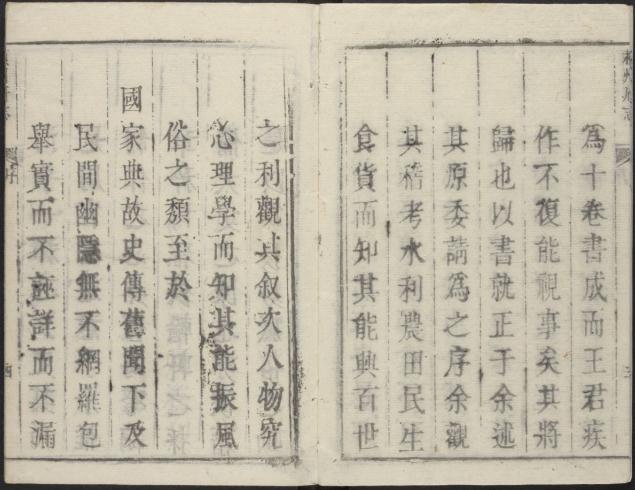 為十卷書成而王君疾
作不復能視事矣其將
歸也以書就正于余述
其原委請為之序余觀
其稽考水利農田民生
食貨而知其能興百世
之利觀其叙次人物究
心理學而知其能振風
俗之類至於
國家典故史傳舊聞下及
民間幽隱無不網羅包
舉實而不誣詳而不漏